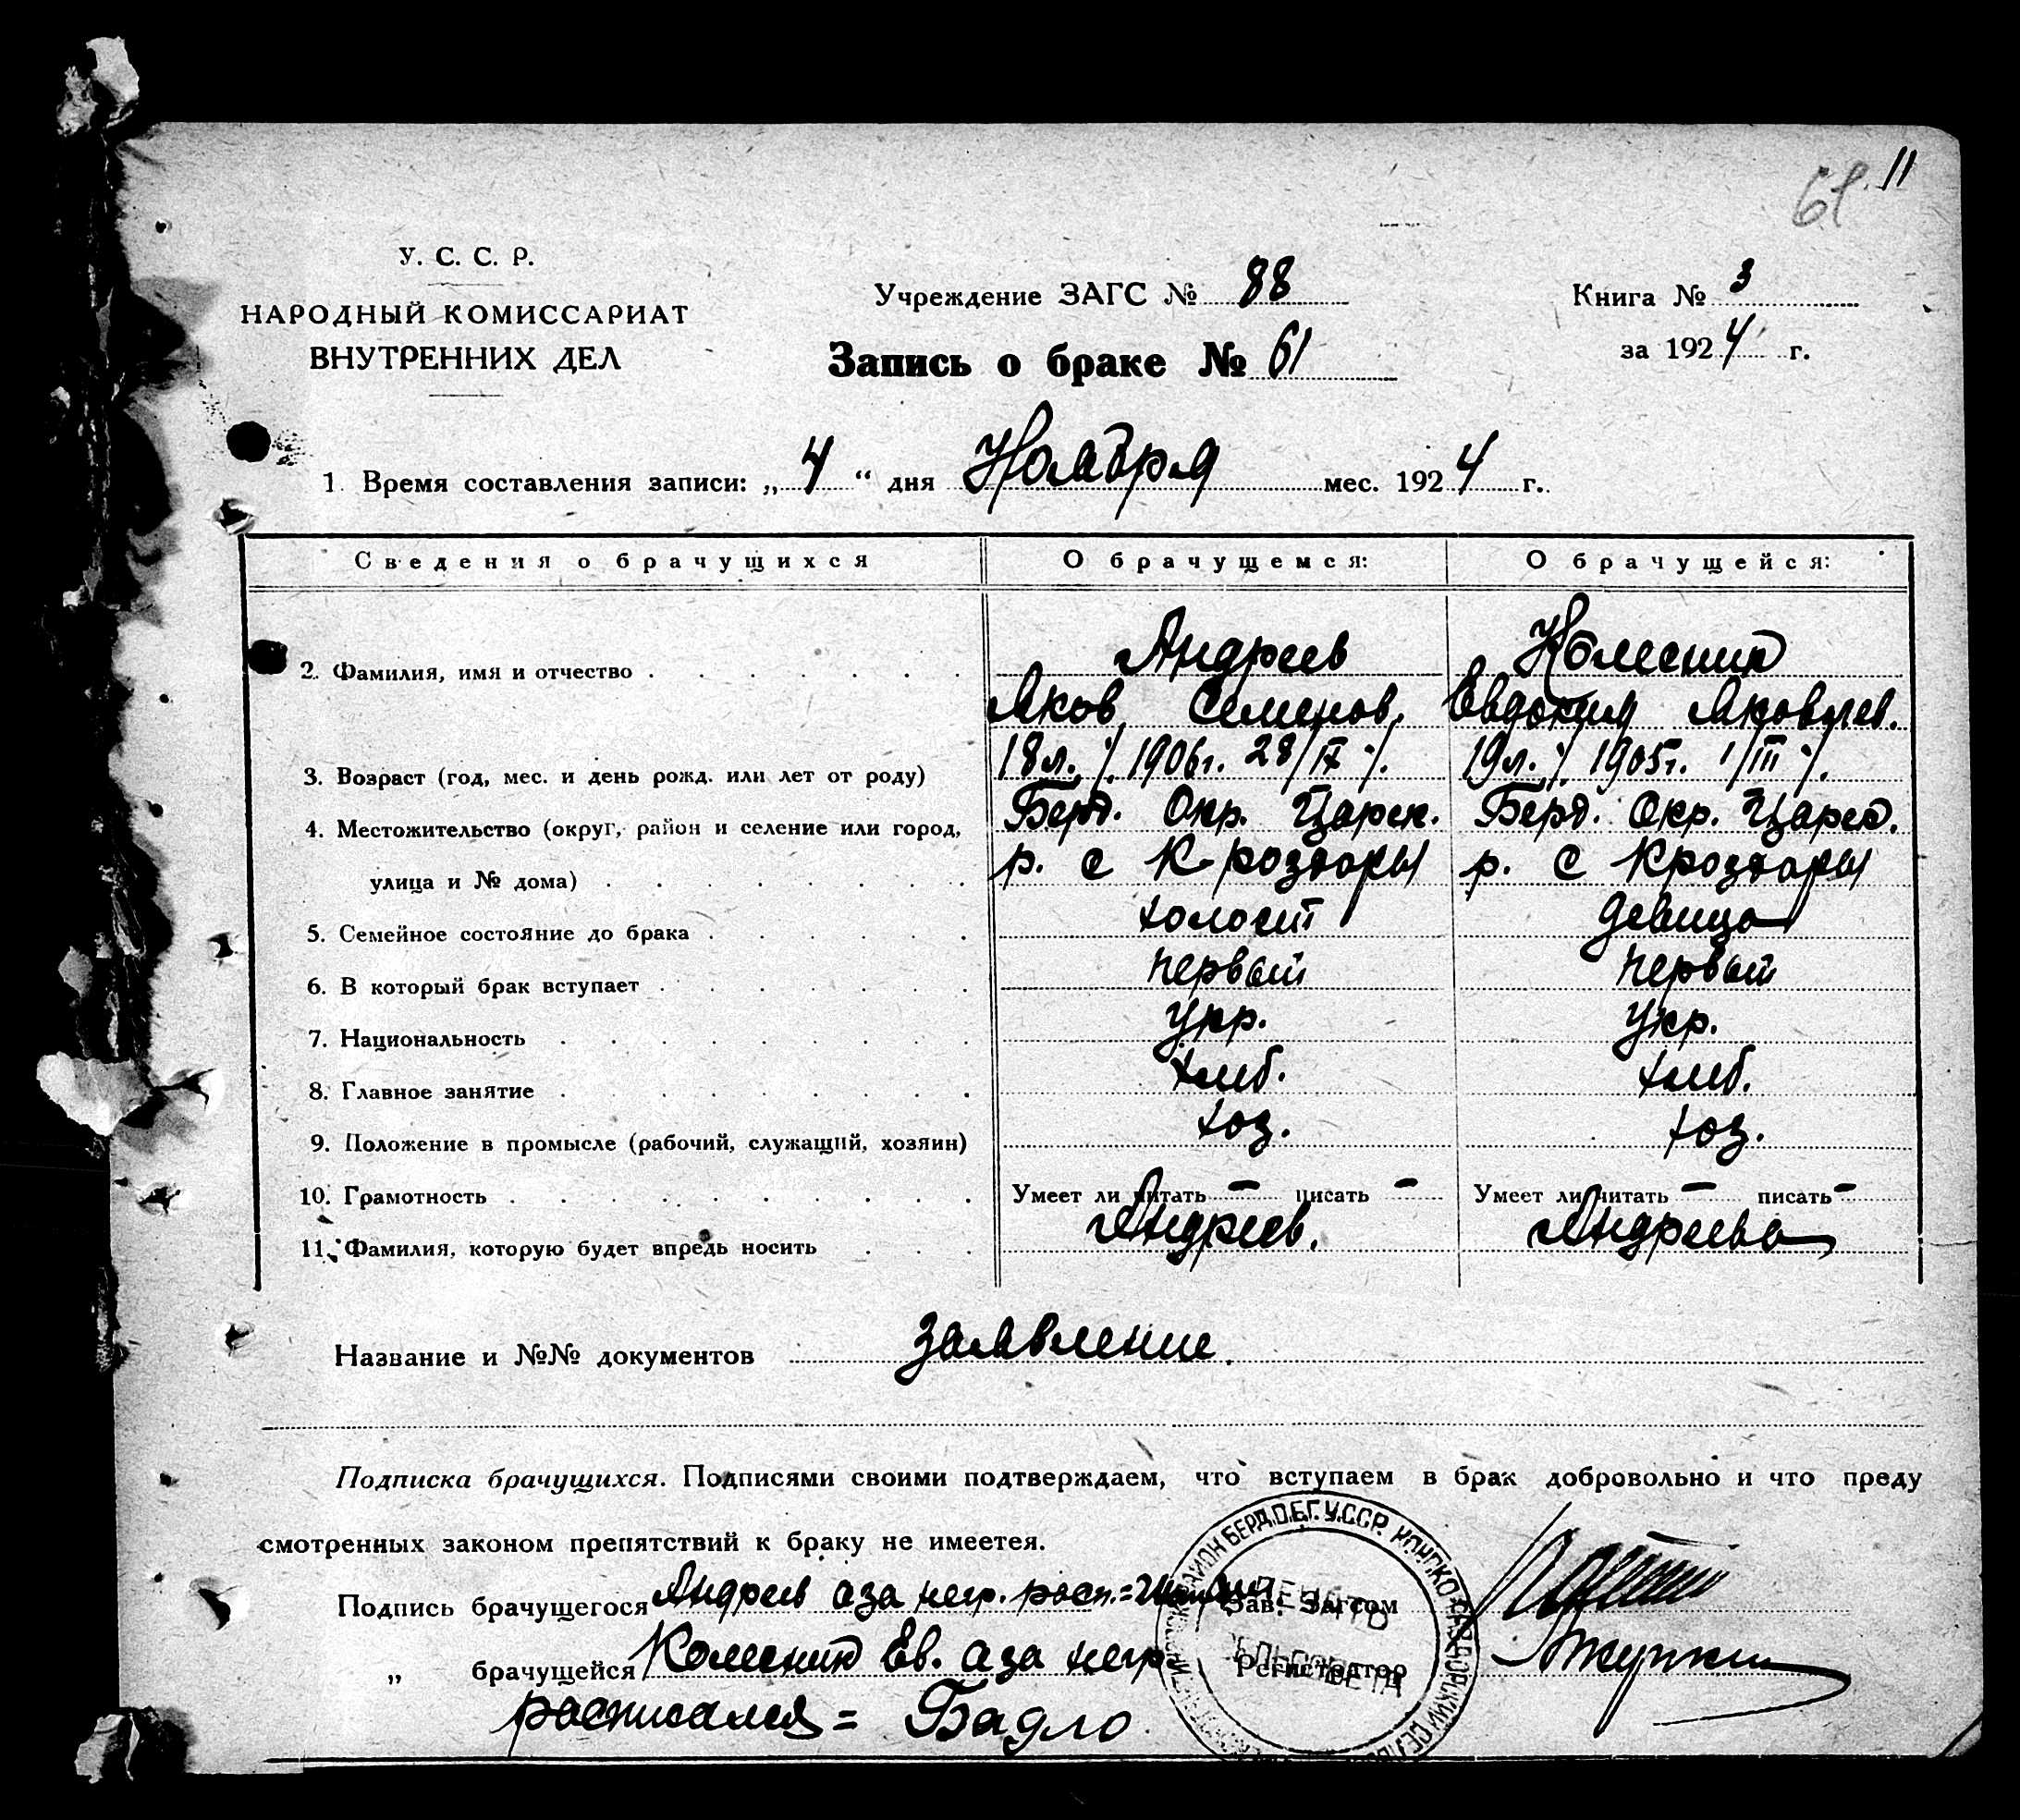 61 11
У. С. С. Р.
НАРОДНЫЙ КОМИССАРИАТ
ВНУТРЕННИХ ДЕЛ
Учреждение ЗАГС № 88
Книга № 3
Запись о браке № 61
за 1924 г.
1. Время составления записи: „ 4 “ дня Ноября мес. 1924 г.
Сведения о брачущихся О брачущемся: О брачущейся:
2. Фамилия, имя и отчество Андреев Колесник
Яков Семенов. Евдокия Яковлев.
3. Возраст (год, мес. и день рожд. или лет от роду) 18 л. ·/. 1906 г. 28/IX ·/. 19 л. ·/. 1905 г. 1/III ·/.
4. Местожительство (округ, район и селение или город, Берд. Окр. Царек. Берд. Окр. Царек.
улица и № дома) р. с К-роздоры р. с Кроздоры
5. Семейное состояние до брака холост девица
6. В который брак вступает первый первый
7. Национальность Укр. Укр.
8. Главное занятие хлеб. хлеб.
9. Положение в промысле (рабочий, служащий, хозяин) хоз. хоз.
10. Грамотность Умеет ли читать — писать — Умеет ли читать — писать —
11. Фамилия, которую будет впредь носить Андреев. Андреева
Название и №№ документов заявление.
Подписка брачущихся. Подписями своими подтверждаем, что вступаем в брак добровольно и что преду
смотренных законом препятствий к браку не имеетея.
Подпись брачущегося Андреев аза негр. расп.= Зав. Загсом
„ брачущейся Колесник Ев. аза негр Регистратор
расписался = Бадло
РАЙОН БЕРД. О.Б.Г. У.С.С.Р. КОНСКО